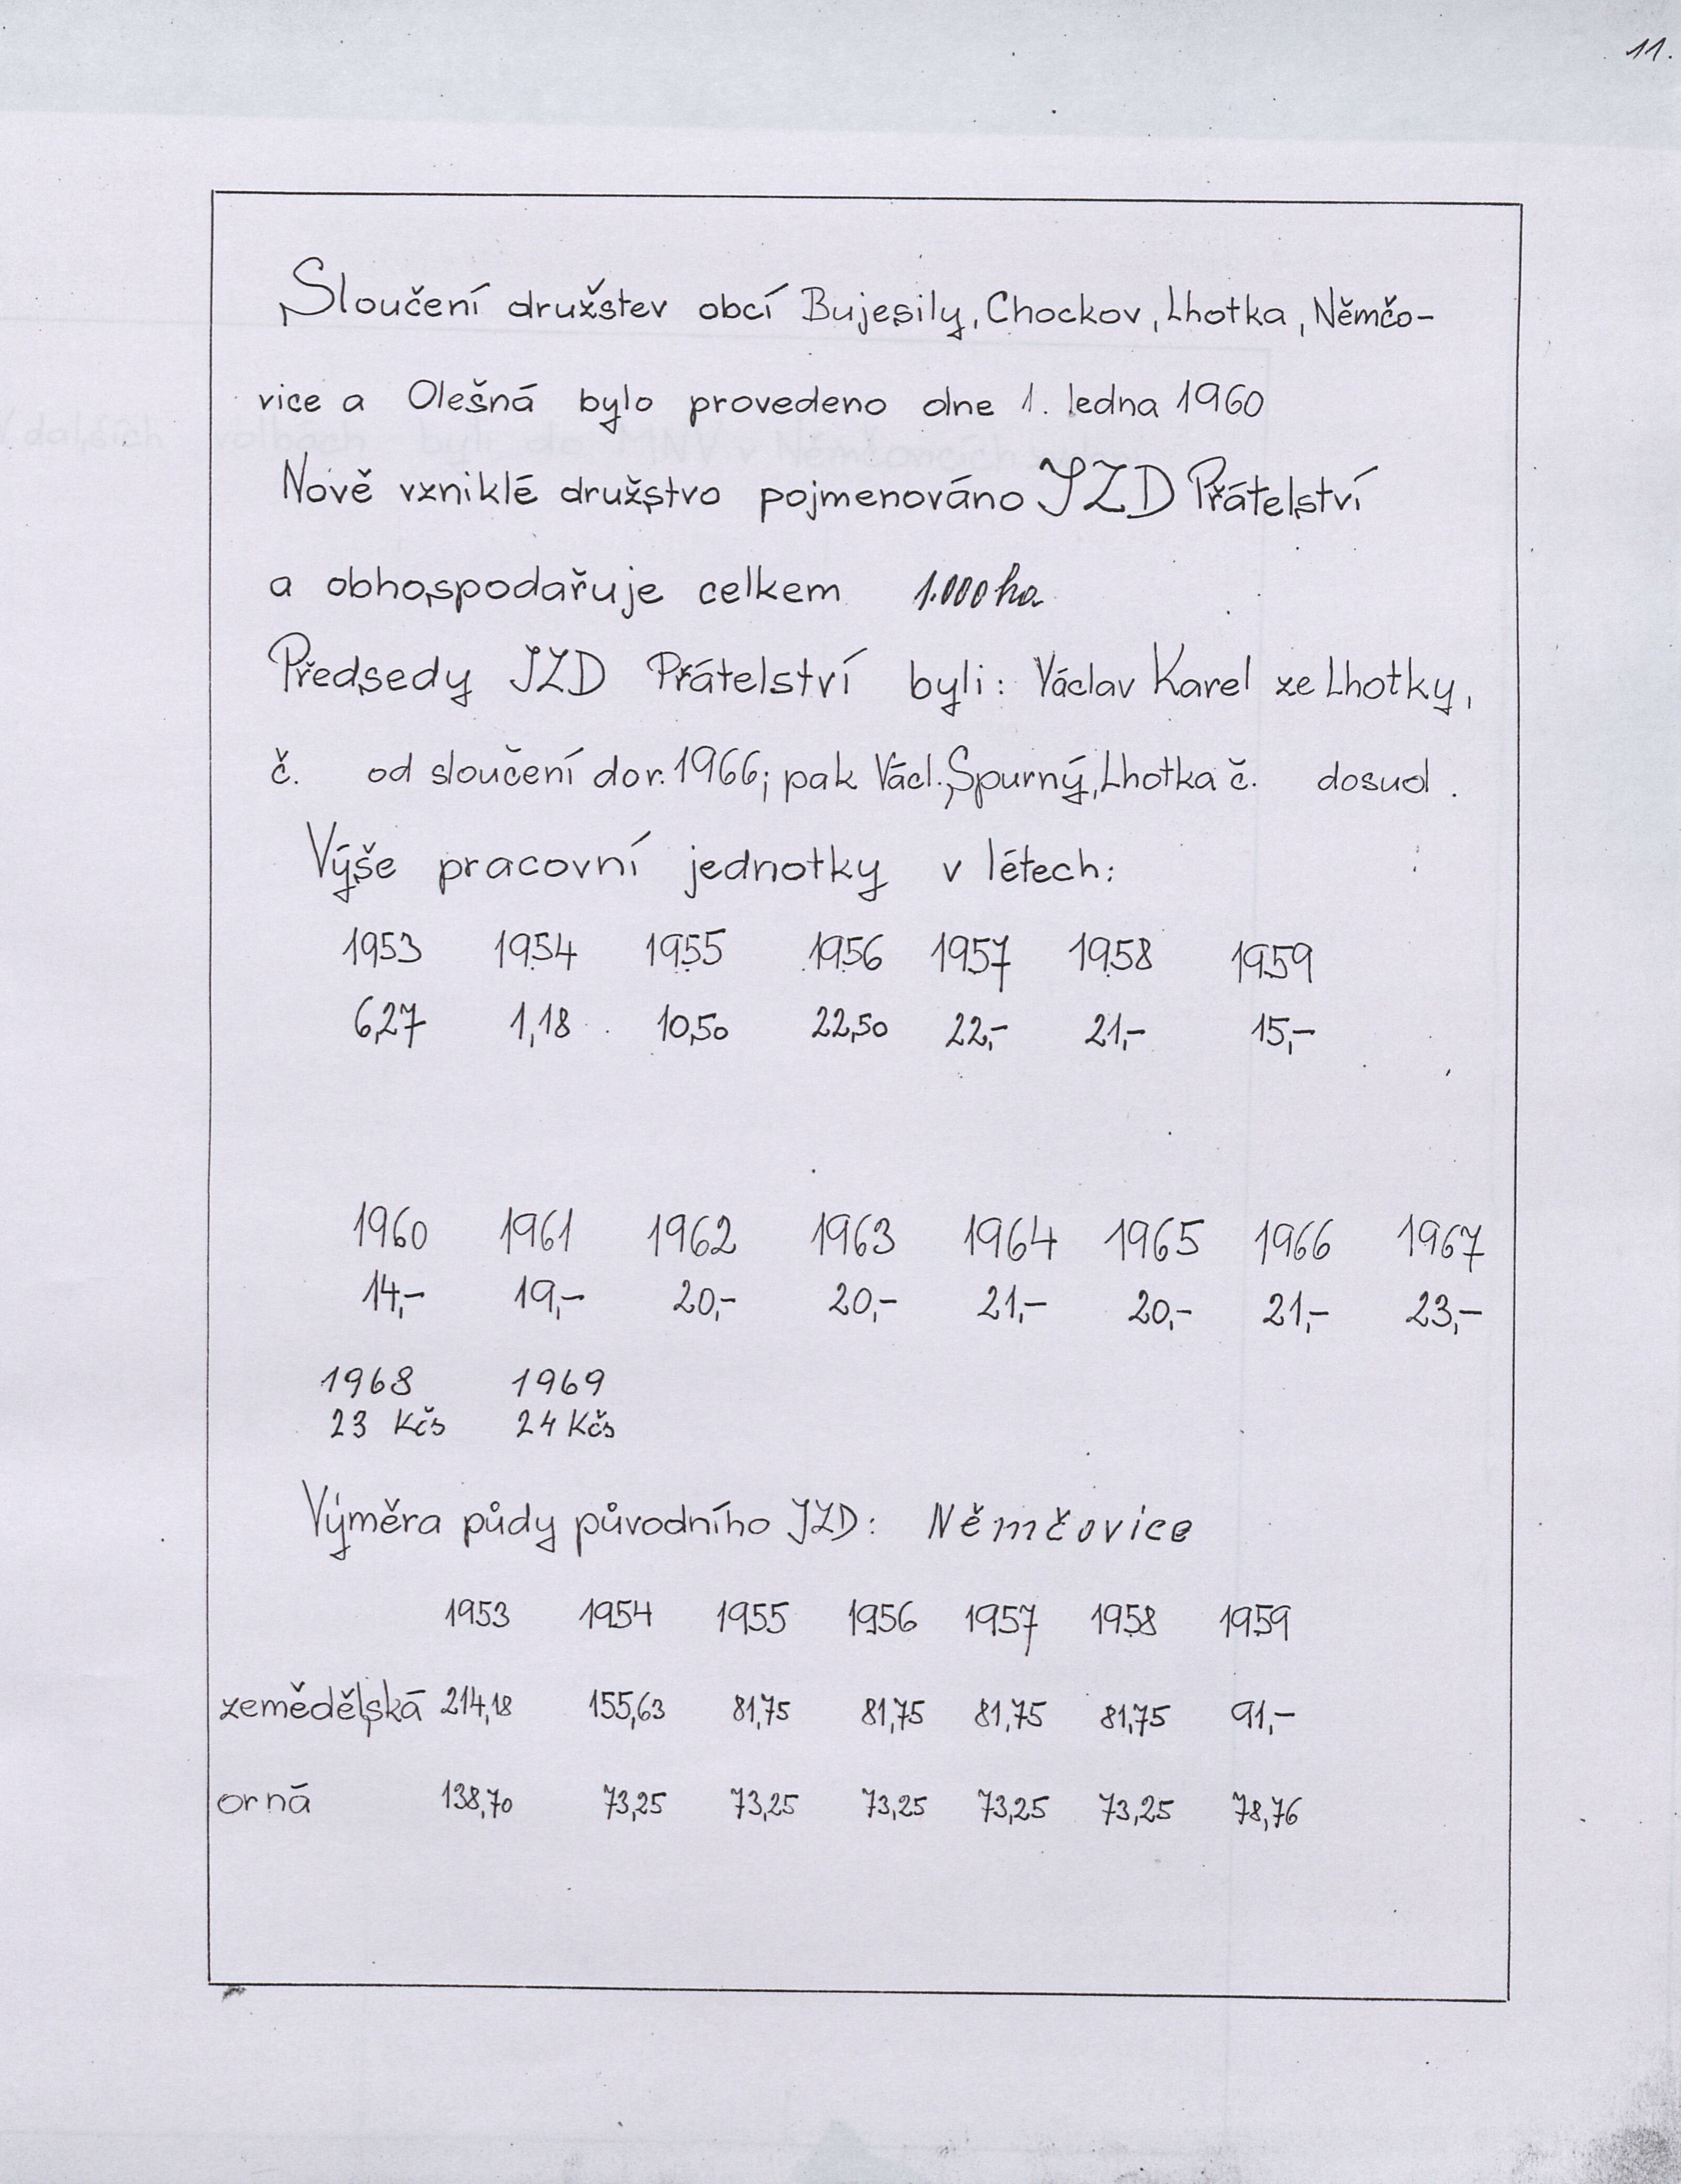 11.
Sloučení družstev obcí Bujesily, Chockov, Lhotka, Němčo-
vice a Olešná bylo provedeno dne 1. ledna 1960
Nově vzniklé družstvo pojmenováno JZD Přátelství
a obhospodařuje celkem 1.000 ha
Předsedy JZD Přátelství byli: Václav Karel ze Lhotky,
č. od sloučení do r. 1966; pak Václ. Spurný, Lhotka č. dosud.
Výše pracovní jednotky v létech:
1953 1954 1955 1956 1957 1958 1959
6,27 1,18 10,50 22,50 22,- 21,- 15,-
1960 1961 1962 1963 1964 1965 1966 1967
14,- 19,- 20,- 20,- 21,- 20,- 21,- 23,-
1968 1969
23 Kčs 24 Kčs
Výměra půdy původního JZD: Němčovice
1953 1954 1955 1956 1957 1958 1959
zemědělská 214,18 155,63 81,75 81,75 81,75 81,75 91,-
orná 138,70 73,25 73,25 73,25 73,25 73,25 78,76